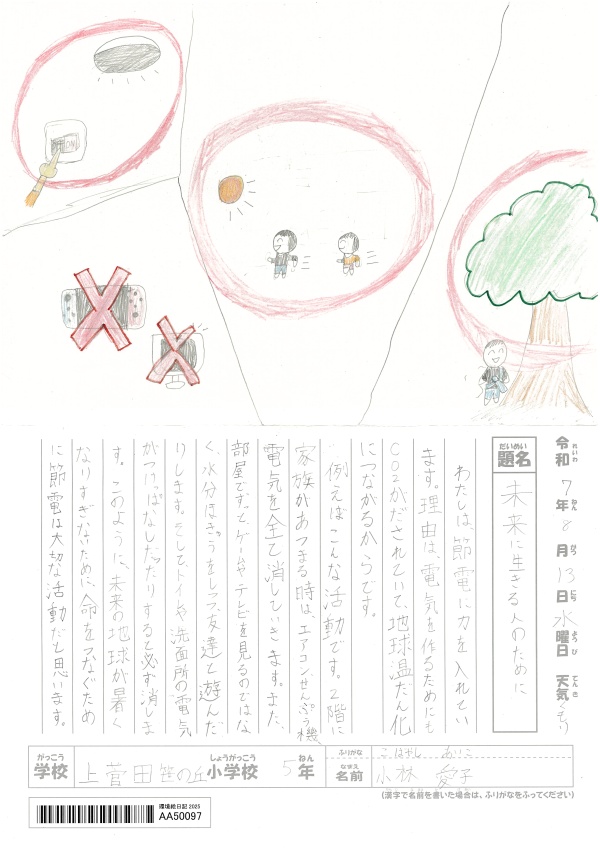 令和7年8月13日水曜日 天気くもり
れいわ ねん がつ にち ようび てんき
だいめい
題名
未来に生きる人のために
わたしは、節電に力を入れてい
ます。理由は、電気を作るためにも
CO2がだされていて、地球温だん化
につながるからです。
例えばこんな活動です。2階に
家族があつまる時は、エアコン、せんぷう機、
電気を全て消していきます。また、
部屋でずっとゲームやテレビを見るのではな
く、水分ほきゅうをしつつ友達と遊んだ
りします。そして、トイレや洗面所の電気
がつけっぱなしだったりすると必ず消しま
す。このように、未来の地球が暑く
なりすぎないために、命をつなぐため
に節電は大切な活動だと思います。
がっこう
学校
上菅田笹の丘
しょうがっこう
小学校
5
ねん
年
ふりがな
こばやし あいこ
なまえ
名前
小林 愛子
(漢字で名前を書いた場合は、ふりがなをふってください)
環境絵日記 2025
AA50097